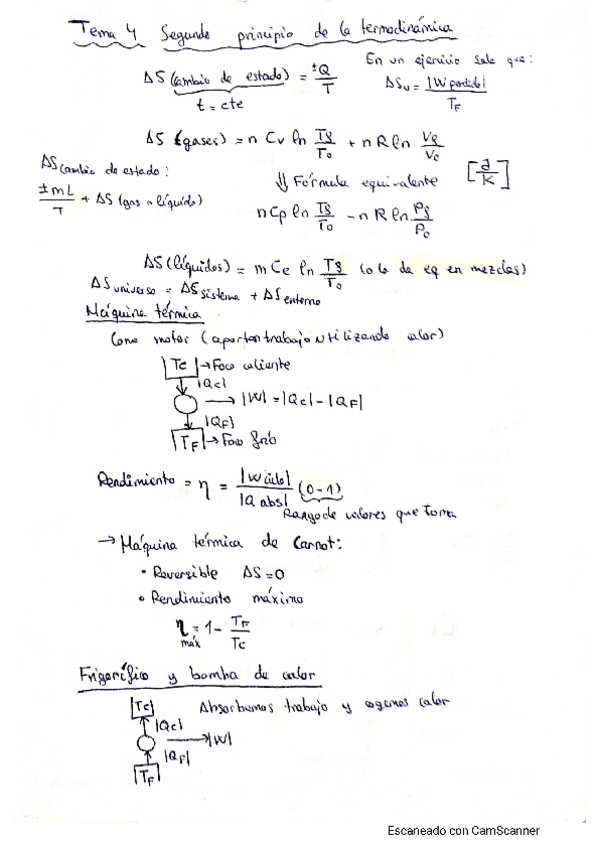 Tema 4 Segundo principio de la termodinámica
En un ejercicio sale que:
ΔS (cambio de estado) = ±Q/T
t = cte
ΔSu = |W perdido|/TF
ΔS (gases) = n Cv ln Tf/To + n R ln Vf/Vo
ΔS cambio de estado:
±mL/T + ΔS (gas o líquido)
⇓ Fórmula equivalente
[J/K]
n Cp ln Tf/To − n R ln Pf/Po
ΔS (líquidos) = m Ce ln Tf/To (o la de eq en mezclas)
ΔS universo = ΔS sistema + ΔS entorno
Máquina térmica
Como motor (aportan trabajo utilizando calor)
Tc → Foco caliente
|Qc|
→ |W| = |Qc| − |QF|
|QF|
TF → Foco frío
Rendimiento = η = |W ciclo|/|Q abs| (0-1)
Rango de valores que toma
→ Máquina térmica de Carnot:
• Reversible ΔS = 0
• Rendimiento máximo
η máx = 1 − TF/Tc
Frigorífico y bomba de calor
Tc
Absorbemos trabajo y cogemos calor
|Qc|
→ |W|
|QF|
TF
Escaneado con CamScanner